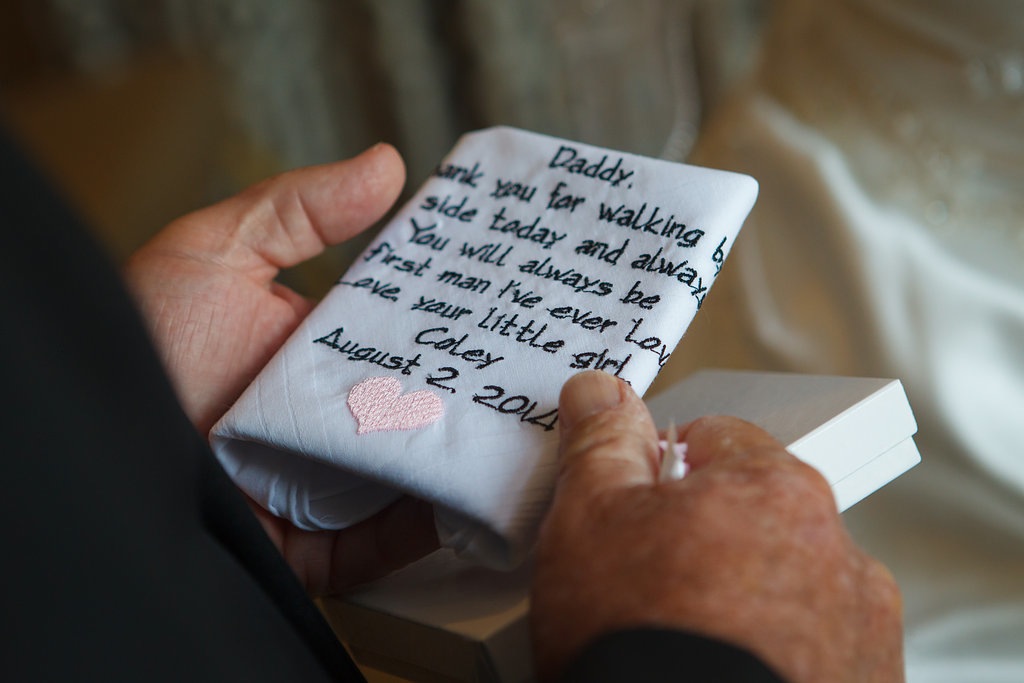 Daddy,
ank you for walking b
side today and always
You will always be
first man I've ever lov
Love, your little girl,
Coley
August 2, 2014